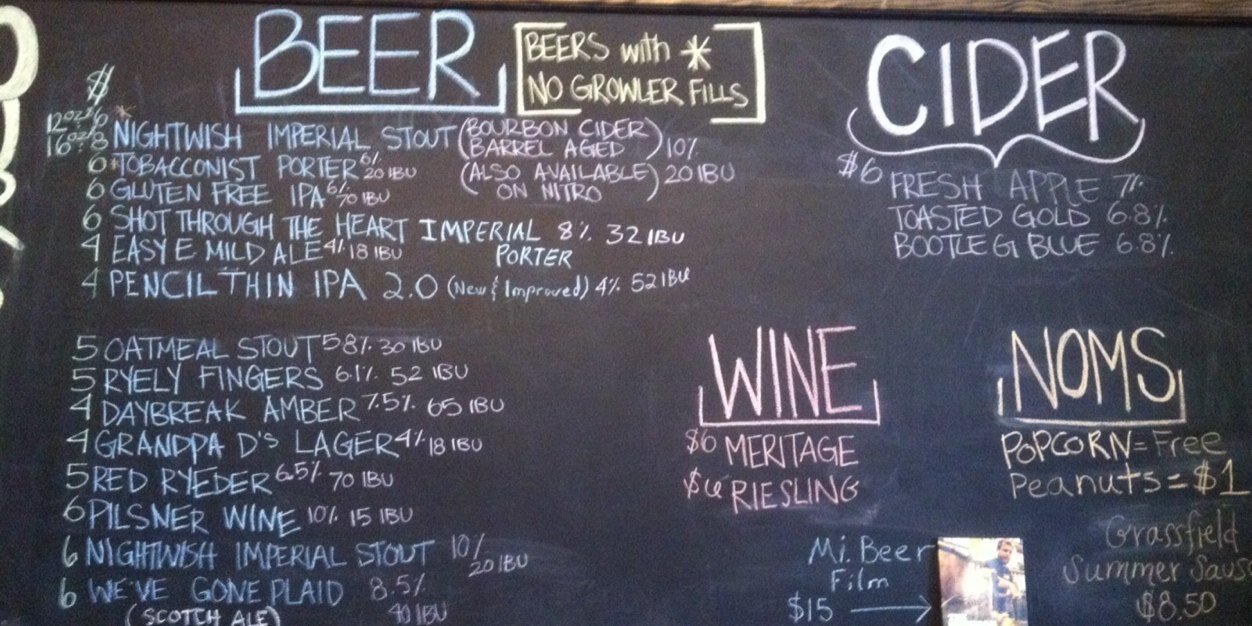 BEER
BEERS with *
NO GROWLER FILLS
$
12oz 6 *
16oz 8 NIGHTWISH IMPERIAL STOUT (BOURBON CIDER BARREL AGED) 10%
6 *TOBACCONIST PORTER 6% 20 IBU (ALSO AVAILABLE ON NITRO) 20 IBU
6 GLUTEN FREE IPA 6% 70 IBU
6 SHOT THROUGH THE HEART IMPERIAL PORTER 8% 32 IBU
4 EASY E MILD ALE 4% 18 IBU
4 PENCIL THIN IPA 2.0 (New & Improved) 4% 52 IBU
5 OATMEAL STOUT 5.8% 30 IBU
5 RYELY FINGERS 6.1% 52 IBU
4 DAYBREAK AMBER 7.5% 65 IBU
4 GRANDPA D'S LAGER 4% 18 IBU
5 RED RYEDER 6.5% 70 IBU
6 PILSNER WINE 10% 15 IBU
6 NIGHTWISH IMPERIAL STOUT 10% 20 IBU
6 WE'VE GONE PLAID 8.5%
(SCOTCH ALE) 40 IBU
CIDER
$6 FRESH APPLE 7%
TOASTED GOLD 6.8%
BOOTLEG BLUE 6.8%
WINE
$6 MERITAGE
$6 RIESLING
NOMS
POPCORN = Free
Peanuts = $1
Grassfield
Summer Saus
$8.50
Mi. Beer
Film
$15